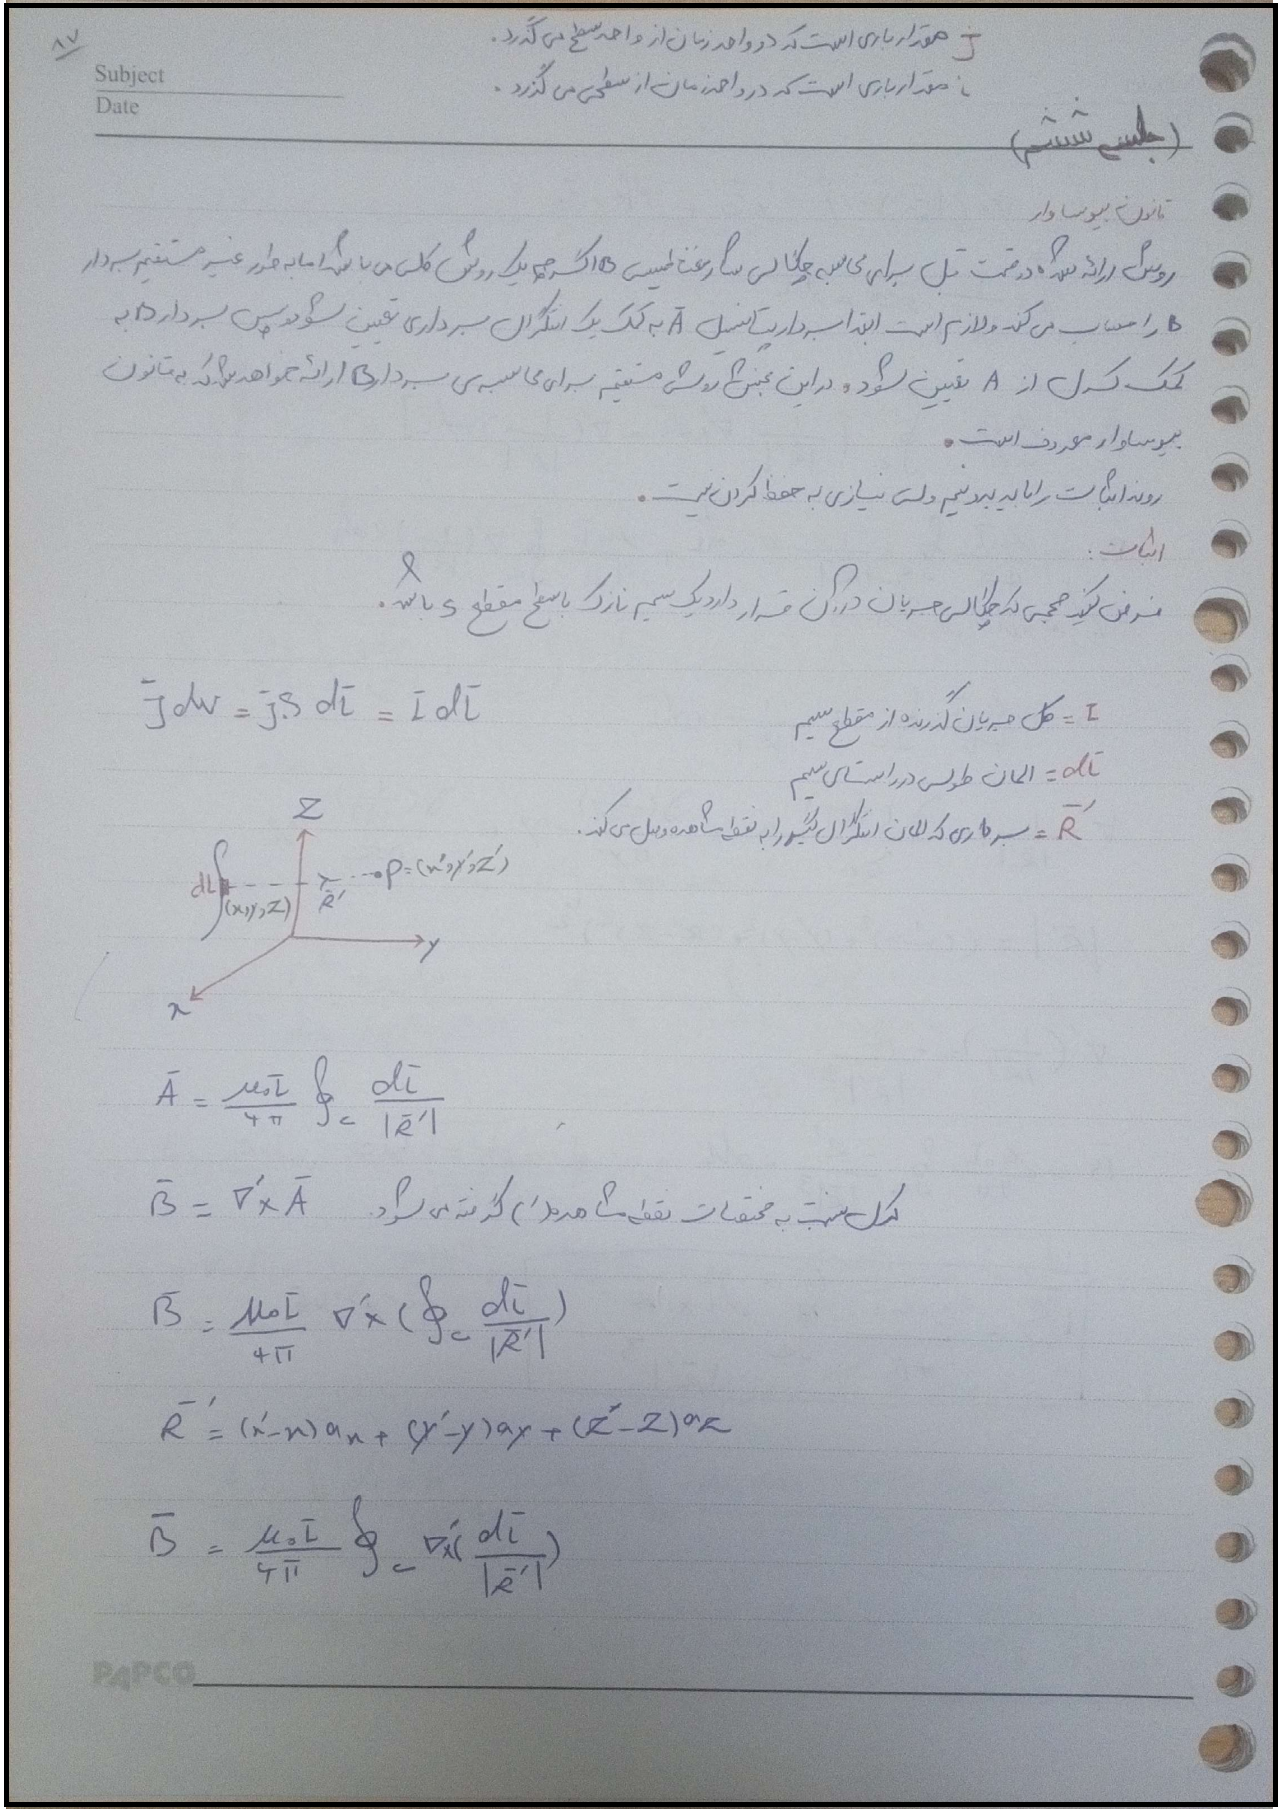 ۸۷
j̄ مقدار باری است که در واحد زمان از واحد سطح می گذرد.
Subject
i مقدار باری است که در واحد زمان از سطحی می گذرد.
Date
(جلسه ششم)
قانون بیوساوار
روش ارائه شده در قسمت قبل برای محاسبه چگالی شار مغناطیسی B اگر چه یک روش کلی می باشد اما به طور غیر مستقیم بردار
B را حساب می کند و لازم است ابتدا بردار پتانسیل Ā به کمک یک انتگرال برداری تعیین شود و سپس بردار B به
کمک کرل از A تعیین شود. در این بخش روش مستقیم برای محاسبه ی بردار B ارائه خواهد شد که به قانون
بیوساوار معروف است.
روند اثبات را باید بدونیم ولی نیازی به حفظ کردن نیست.
اثبات:
فرض کنید حجمی که چگالی جریان در آن قرار دارد یک سیم نازک با سطح مقطع S باشد.
j̄ dv = j.S dl̄ = I dl̄
I = کل جریان گذرنده از مقطع سیم
dl̄ = المان طولی در راستای سیم
R̄' = برداری که المان انتگرال گیر را به نقطه مشاهده وصل می کند.
Z
P=(x',y',z')
dl
(x,y,z)
R̄'
y
x
Ā = μ₀I/4π ∮c dl̄/|R̄'|
B̄ = ∇'×Ā کرل نسبت به مختصات نقطه مشاهده (') گرفته می شود.
B̄ = μ₀I/4π ∇'×(∮c dl̄/|R̄'|)
R̄' = (x'-x)ax + (y'-y)ay + (z'-z)az
B̄ = μ₀I/4π ∮c ∇'×(dl̄/|R̄'|)
PAPCO